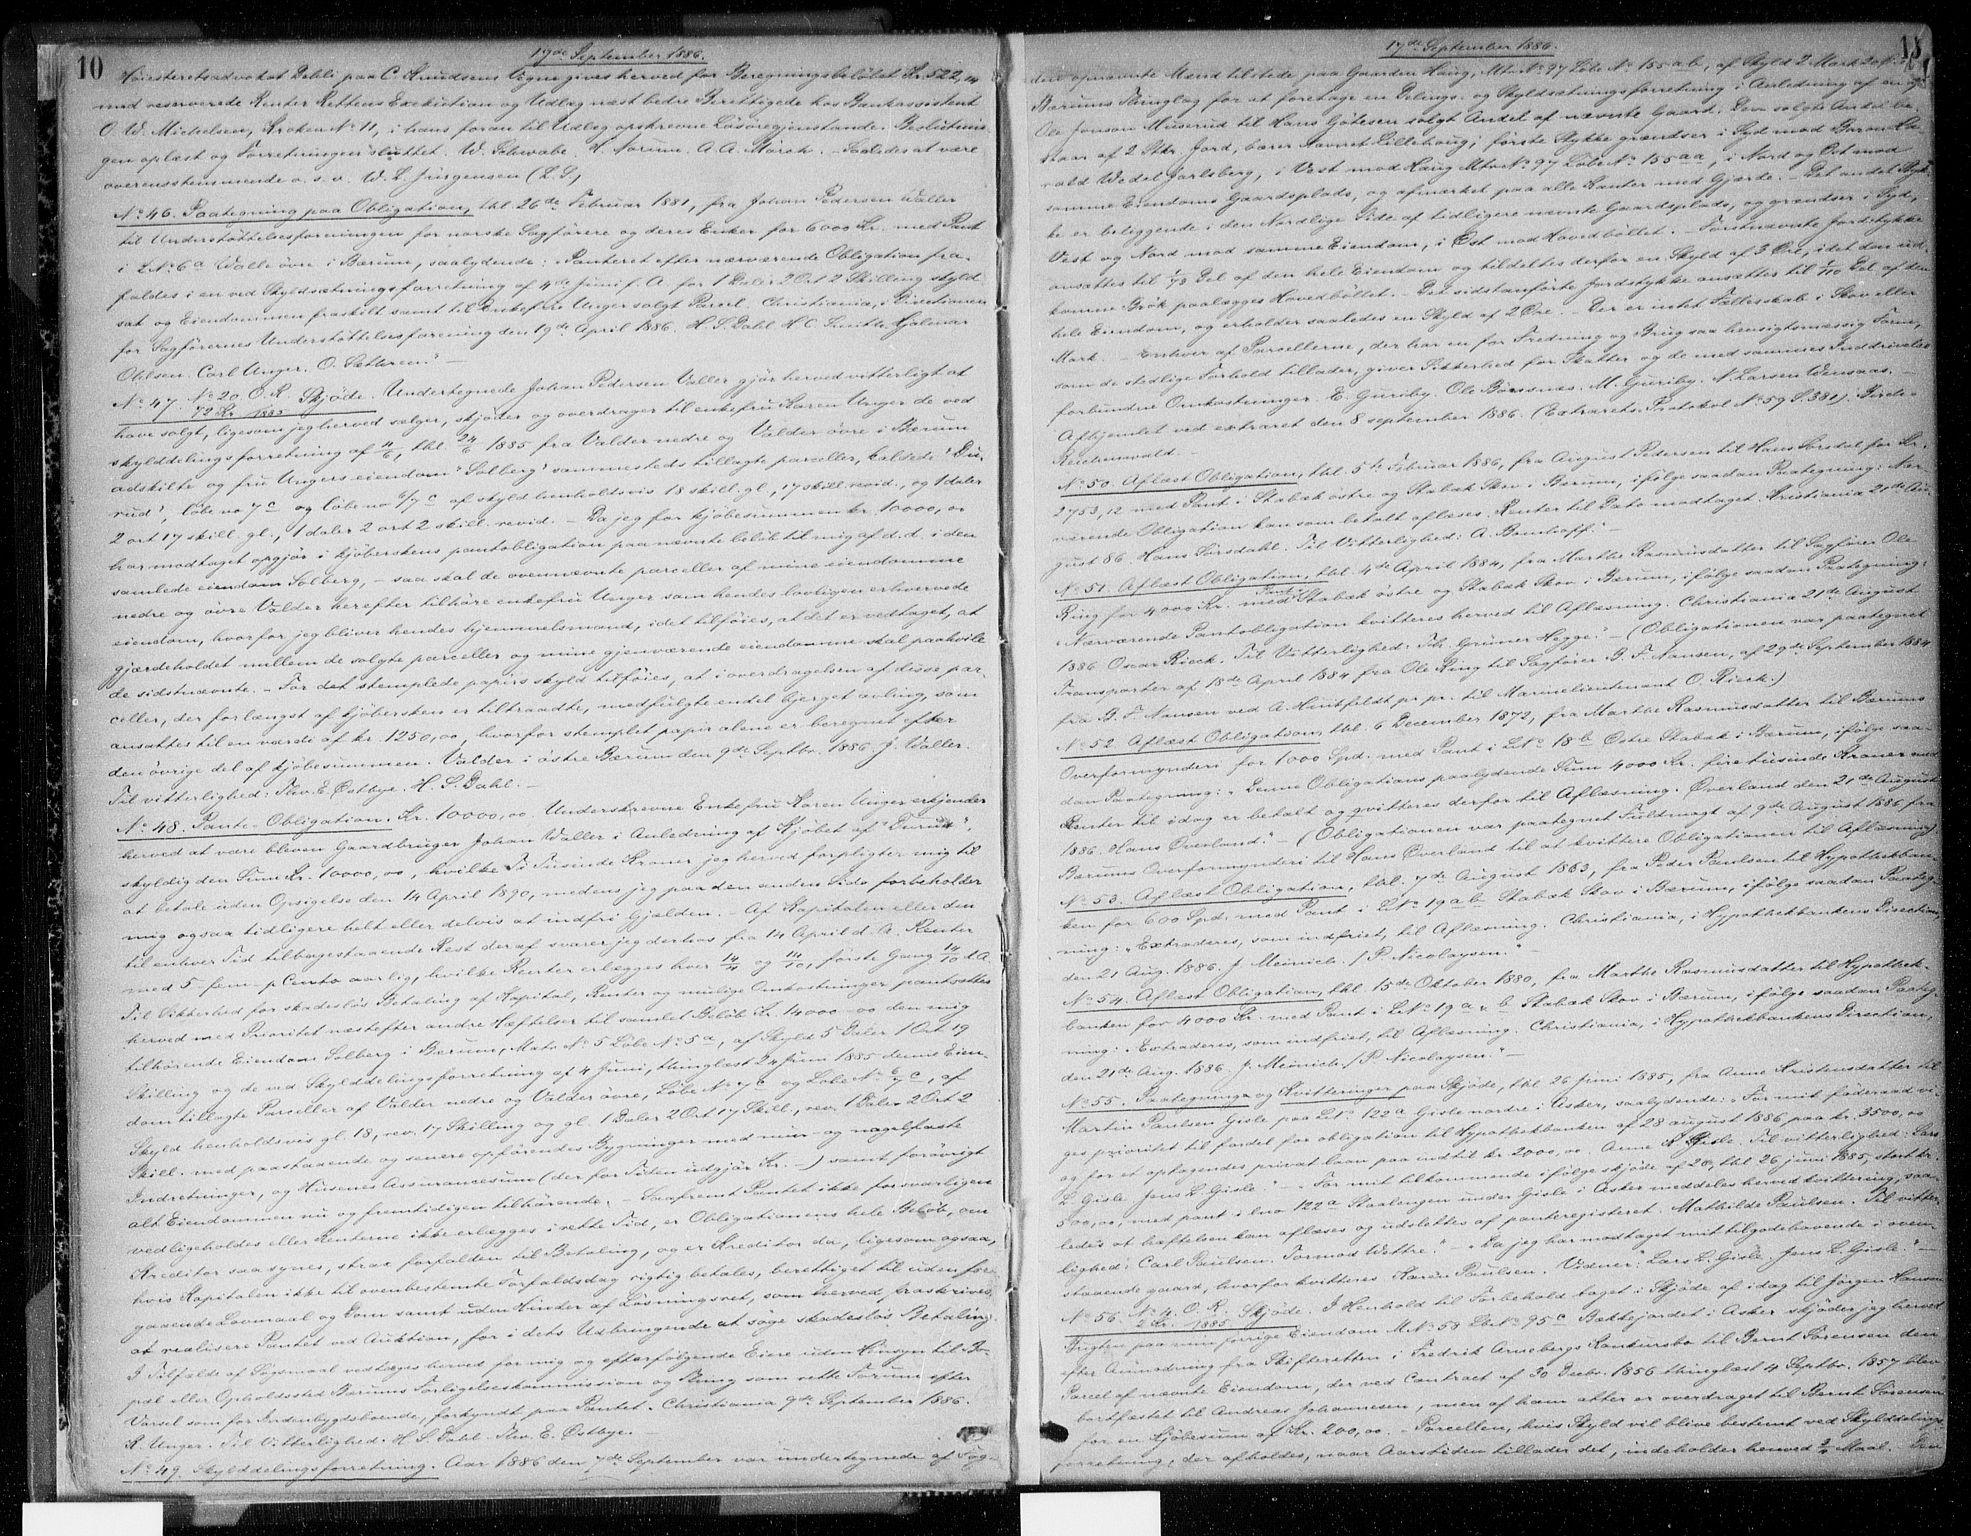 10
17de September 1886.
Høiesteretsadvokat Debli paa C. Knudsens Vegne gives herved for Beregningsbeløbet Kr. 522,
med reserverede Renter Rettens Exekution og Udlæg næst bedre Berettigede hos Bankassistent
O. W. Michelsen, Kroken No 11, i hans foran til Udlæg opskrevne Løsøregjenstande. Beslutnin-
gen oplæst og Forretningen sluttet. W. Schwabe. H. Norum. A. A. Mørch. – Saaledes at være
overensstemmende o. s. v. W. L. Jürgensen (L.S.)
No 46. Paategning paa Obligation, thl. 26de Februar 1881, fra Johan Pedersen Valler
til Understøttelsesforeningen for norske Sagførere og deres Enker for 6000 Kr. med Pant
i LNo 6a Valle øvre i Bærum, saalydende: "Panteret efter nærværende Obligation fra-
faldes i en ved Skyldsætningsforretning af 4de Juni f. A. for 1 Daler 2 Ort 2 Skilling skyld
sat og Eiendommen fraskilt samt til Enkefru Unger solgt Parcel. Christiania, i Directionen
for Sagførernes Understøttelsesforening den 19de April 1886. H. S. Dahl. H. C. Smith. Hjalmar
Ohlsen. Carl Unger. O. Sættren." –
No 47. No 20 O. R. 72 Kr. 1885 Skjøde. Undertegnede Johan Pedersen Valler gjør herved vitterligt at
have solgt, ligesom jeg herved sælger, skjøder og overdrager til enkefru Karen Unger de ved
skylddelingsforretning af 4/6, thl. 24/6 1885 fra Valder nedre og Valder øvre i Bærum
adskilte og fru Ungers eiendom "Solberg" sammesteds tillagte parceller, kaldede "Du-
rud", løbe no 7c og løbe no 6/7c af skyld henholdsvis 18 skill. gl., 17 skill. revid., og 1 daler
2 ort 17 skill. gl., 1 daler 2 ort 2 skill. revid. – Da jeg for kjøbesummen kr. 10000,00
har modtaget opgjør i kjøberskens pantobligation paa nævnte beløb til mig af d. d. i den
samlede eiendom Solberg, – saa skal de ovennævnte parceller af mine eiendomme
nedre og øvre Valder herefter tilhøre enkefru Unger som hendes lovligen erhvervede
eiendom, hvorfor jeg bliver hendes hjemmelsmand, idet tilføies, at det er vedtaget, at
gjærdeholdet mellem de solgte parceller og mine gjenværende eiendomme skal paahvile
de sidstnævnte. – For det stemplede papirs skyld tilføies, at i overdragelsen af disse par-
celler, der forlængst af kjøbersken er tiltraadte, medfulgte endel bjerget avling, som
ansættes til en værdi af kr. 1250,00, hvorfor stemplet papir alene er beregnet efter
den øvrige del af kjøbesummen. Valder i østre Bærum den 9de Septbr. 1886. J. Valler.
Til vitterlighed: Thv. E. Østbye. H. S. Dahl. –
No 48. Pante-Obligation. Kr. 10000,00. Underskrevne Enkefru Karen Unger erkjender
herved at være bleven Gaardbruger Johan Waller i Anledning af Kjøbet af "Durud",
skyldig den Sum Kr. 10000,00, hvilke Ti Tusinde Kroner jeg herved forpligter mig til
at betale uden Opsigelse den 14 April 1890, medens jeg paa den anden Side forbeholder
mig ogsaa tidligere helt eller delvis at indfri Gjælden. – Af Kapitalen eller den
til enhver Tid tilbagestaaende Rest deraf svarer jeg derhos fra 14 April d. A. Renter
med 5 – fem – p Cento aarlig, hvilke Renter erlægges hver 14/4 og 14/10, første Gang 14/10 d. A.
Til Sikkerhed for skadesløs Betaling af Kapital, Renter og mulige Omkostninger pantsættes
herved med Prioritet næstefter andre Hæftelser til samlet Beløb Kr. 14000-00 den mig
tilhørende Eiendom Solberg i Bærum, Matr. No 5 Løbe No 5a, af Skyld 5 Daler 1 Ort 19
Skilling og de ved Skylddelingsforretning af 4 Juni, thinglæst 24 Juni 1885 denne Eien-
dom tillagte Parceller af Valder nedre og Valder øvre, Løbe No 7c og Løbe No 6/7c, af
Skyld henholdsvis gl. 18, rev. 17 Skilling og gl. 1 Daler 2 Ort 17 Skill., rev. 1 Daler 2 Ort 2
Skill. med paastaaende og senere opførendes Bygninger med mur- og nagelfaste
Indretninger, og Husenes Assurancesum (der for Tiden udgjør Kr. –) samt forøvrigt
alt Eiendommen nu og fremtidigen tilhørende. – Saafremt Pantet ikke forsvarligen
vedligeholdes eller Renterne ikke erlægges i rette Tid, er Obligationens hele Beløb, om
Kreditor saa synes, strax forfalden til Betaling, og er Kreditor da, ligesom ogsaa,
hvis Kapitalen ikke til ovenbestemte Forfaldsdag rigtig betales, berettiget til uden fore-
gaaende Lovmaal og Dom samt uden Hinder af Løsningsret, som herved fraskrives,
at realisere Pantet ved Auktion, for i dets Udbringende at søge skadesløs Betaling.
I Tilfælde af Søgsmaal vedtages herved for mig og efterfølgende Eiere uden Hensyn til Bo-
pæl eller Opholdssted Bærums Forligelseskommission og Thing som rette Forum efter
Varsel som for Indenbygdsboende, forkyndt paa Pantet. Christiania 9de September 1886.
K. Unger. Til Vitterlighed. H. S. Dahl. Thv. E. Østbye. –
No 49. Skylddelingsforretning. Aar 1886 den 7de September var undertegnede af Fog-
17de September 1886.
den opnævnte Mænd tilstede paa Gaarden Haug, Mtr. No 97 Løbe No 155ab, af Skyld 2 Mark
Bærums Thinglag for at foretage en Delings- og Skyldsætningsforretning i Anledning af en
Ole Jonson Muserud til Hans Gotesen solgt Andel af nævnte Gaard. Den solgte Andel be-
staar af 2 Stkr. Jord, bærer Navnet Lillehaug; første Stykke grændser i Syd mod Baron Ha-
rald Wedel Jarlsberg, i Vest mod Haug Mtr. No 97 Løbe No 155aa, i Nord og Øst mod
samme Eiendoms Gaardsplads, og afmærket paa alle Kanter med Gjærde. – Det andet Styk-
ke er beliggende i den Nordlige Side af tidligere nævnte Gaardsplads, og grændser i Syd,
Vest og Nord mod samme Eiendom, i Øst mod Hovedbøllet. – Førstnævnte Jordstykke
ansættes til Del af den hele Eiendom og tildeltes derfor en Skyld af 3 Øre, idet den ud-
komne Brøk paalægges Hovedbøllet. – Det sidstanførte Jordstykke ansættes til 1/110 Del af den
hele Eiendom, og erholder saaledes en Skyld af 2 Øre. – Der er intet Fællesskab i Skov eller
Mark. – Enhver af Parcellerne, der har en for Fredning og Brug saa hensigtsmæssig Form,
som de stedlige Forhold tillader, giver Sikkerhed for Skatter og de med sammes Inddrivelse
forbundne Omkostninger. E. Gursby. Ole Børsnæs. M. Guriby. N. Larsen Wensaas. –
Afhjemlet ved extraret den 8 september 1886. (Extrarets Protokol No 59 S. 381). Birch-
Reichenwald. –
No 50. Aflæst Obligation, thl. 5te Februar 1886, fra August Pedersen til Hans Sørsdal for Kr.
2753,12 med Pant i Stabæk østre og Stabæk Skov i Bærum, ifølge saadan Paategning: "Nær-
værende Obligation kan som betalt aflæses. Renter til Dato modtaget. Kristiania 21de Au-
gust 86. Hans Sørsdahl. Til Vitterlighed: A. Bomhoff." –
No 51. Aflæst Obligation, thl. 4de April 1884, fra Marthe Rasmusdatter til Sagfører Ole
Ring for 4000 Kr. med Pant i Stabæk østre og Stabæk Skov i Bærum, ifølge saadan Paategning:
"Nærværende Pantobligation kvitteres herved til Aflæsning. Christiania 21de August
1886. Oscar Rieck. Til Vitterlighed: Th. Grüner Hegge." – (Obligationen var paategnet
Transporter af 18de April 1884 fra Ole Ring til Sagfører B. F. Nansen, af 29de September 1884
fra B. F. Nansen ved A. Huitfeldt pr. pr. til Marinelieutenant O. Rieck.)
No 52 Aflæst Obligation, thl. 6 December 1872, fra Marthe Rasmusdatter til Bærums
Overformynderi for 1000 Spd. med Pant i LNo 18b Østre Stabæk i Bærum, ifølge saa-
dan Paategning: "Denne Obligations paalydende Sum 4000 Kr. firetusinde Kroner med
Renter til idag er betalt og qvitteres derfor til Aflæsning. Øverland den 21de August
1886. Hans Øverland." – (Obligationen var paategnet Fuldmagt af 9de August 1886 fra
Bærums Overformynderi til Hans Øverland til at kvittere Obligationen til Aflæsning)
No 53. Aflæst Obligation, thl. 7de August 1863, fra Peder Paulsen til Hypothekban-
ken for 600 Spd. med Pant i LNo 19ab Stabæk Skov i Bærum, ifølge saadan Paateg-
ning: "Extraderes, som indfriet, til Aflæsning. Christiania, i Hypothekbankens Direction,
den 21 Aug. 1886. J. Meinich. / P. Nicolaysen." –
No 54. Aflæst Obligation, thl. 15de Oktober 1880, fra Marthe Rasmusdatter til Hypothek-
banken for 4000 Kr. med Pant i LNo 19a & b Stabæk Skov i Bærum, ifølge saadan Paateg-
ning: "Extraderes, som indfriet, til Aflæsning. Christiania, i Hypothekbankens Direction,
den 21de Aug. 1886. J. Meinich. / P. Nicolaysen." –
No 55. Paategning og Kvitteringer paa Skjøde, thl. 26 juni 1885, fra Anne Kristensdatter til
Martin Paulsen Gisle paa LNo 122a Gisle nordre i Asker, saalydende: "For mit føderaad vi-
ges prioritet til fordel for obligation til Hypothekbanken af 28 august 1886 paa kr. 3500,00
og for et optagendes privat laan paa indtil kr. 2000,00. Anne K. Gisle. Til vitterlighed: Lars
L. Gisle. Jens L. Gisle." – "For mit tilkommende ifølge skjøde af 20, thl. 26 juni 1885, stort kr.
500,00, med pant i lno 122a Staalengen under Gisle i Asker meddeles herved kvittering, saa-
ledes at hæftelsen kan aflæses og udslettes af panteregisteret. Mathilde Paulsen. Til vitter-
lighed: Carl Paulsen. Tormod Wettre." – "Da jeg har modtaget mit tilgodehavende i oven-
staaende gaard, hvorfor kvitteres. Karen Paulsen. Vidner: Lars L. Gisle. Jens L. Gisle." –
No 56. No 4. O. R. 2 Kr. 1885. Skjøde. I Henhold til Forbehold taget i Skjøde af idag til Jørgen Hansen
paa min forrige Eiendom M. No 58 Lb. No 95c Bækkejordet i Asker skjøder jeg herved
efter Anmodning fra Skifteretten i Fredrik Annebergs Konkursbo til Bernt Sørensen den
Parcel af nævnte Eiendom, der ved Contract af 30 Decbr. 1856 thinglæst 4 Septbr. 1857 blev
bortfæstet til Andreas Johannesen, men af ham atter er overdraget til Bernt Sørensen
for en Kjøbesum af Kr. 200,00. – Parcellen, hvis Skyld vil blive bestemt ved Skylddelings-
forretning, der afholdes, naar Aarstiden tillader det, indeholder henved Maal.